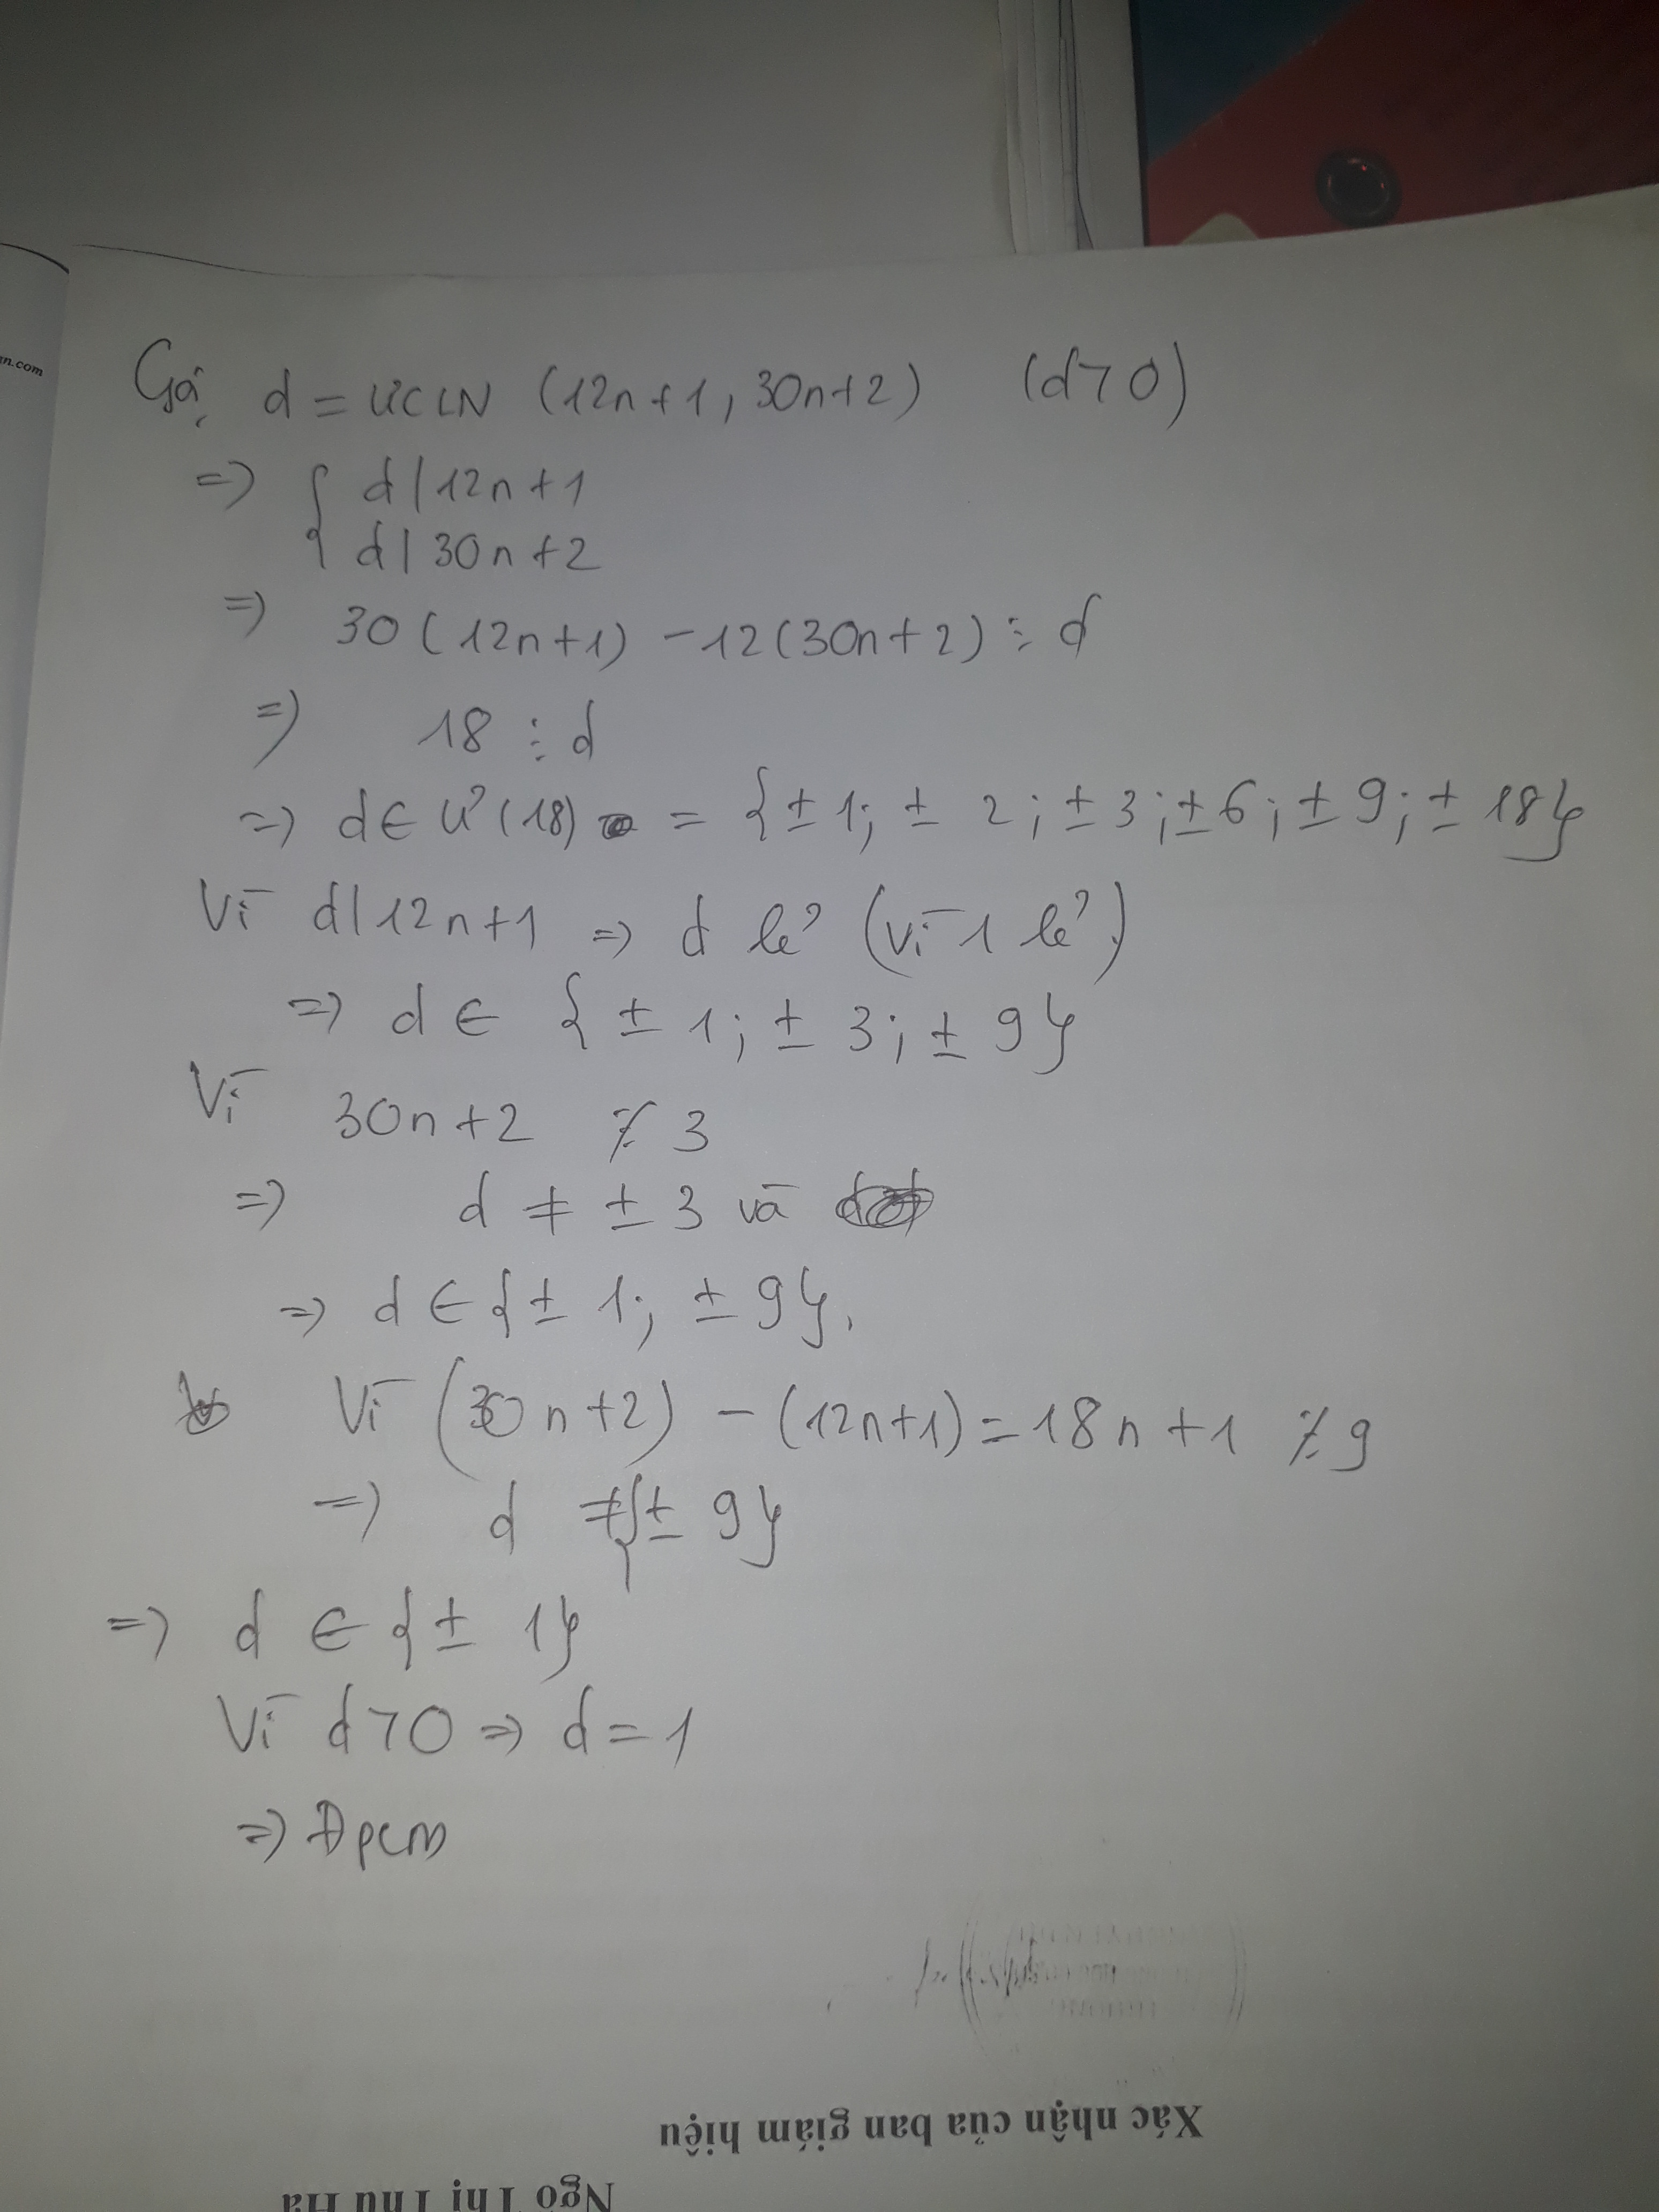 n.com
Gọi d = ƯCLN (12n+1, 30n+2) (d>0)
=> { d|12n+1
d|30n+2
=> 30(12n+1) -12(30n+2) ⋮ d
=> 18 ⋮ d
=> d ∈ Ư(18) = {±1; ±2; ±3; ±6; ±9; ±18}
Vì d|12n+1 => d lẻ (vì 1 lẻ)
=> d ∈ {±1; ±3; ±9}
Vì 30n+2 ⋮̸ 3
=> d ≠ ±3 và
=> d ∈ {±1; ±9}.
Vì (30n+2) - (12n+1) = 18n+1 ⋮̸ 9
=> d ≠ {±9}
=> d ∈ {±1}
Vì d>0 => d=1
=> Đpcm
Xác nhận của ban giám hiệu
Ngô Thị Thu Hà